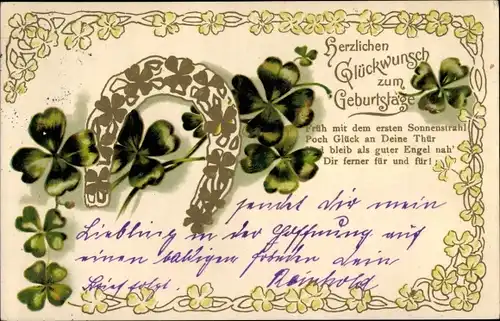 Herzlichen
Glückwunsch
zum
Geburtstage
Früh mit dem ersten Sonnenstrahl
Poch Glück an Deine Thür
bleib als guter Engel nah'
Dir ferner für und für!
sendet dir mein
Liebling in der Hoffnung auf
einen baldigen frohen dein
Brief folgt. Reinhold